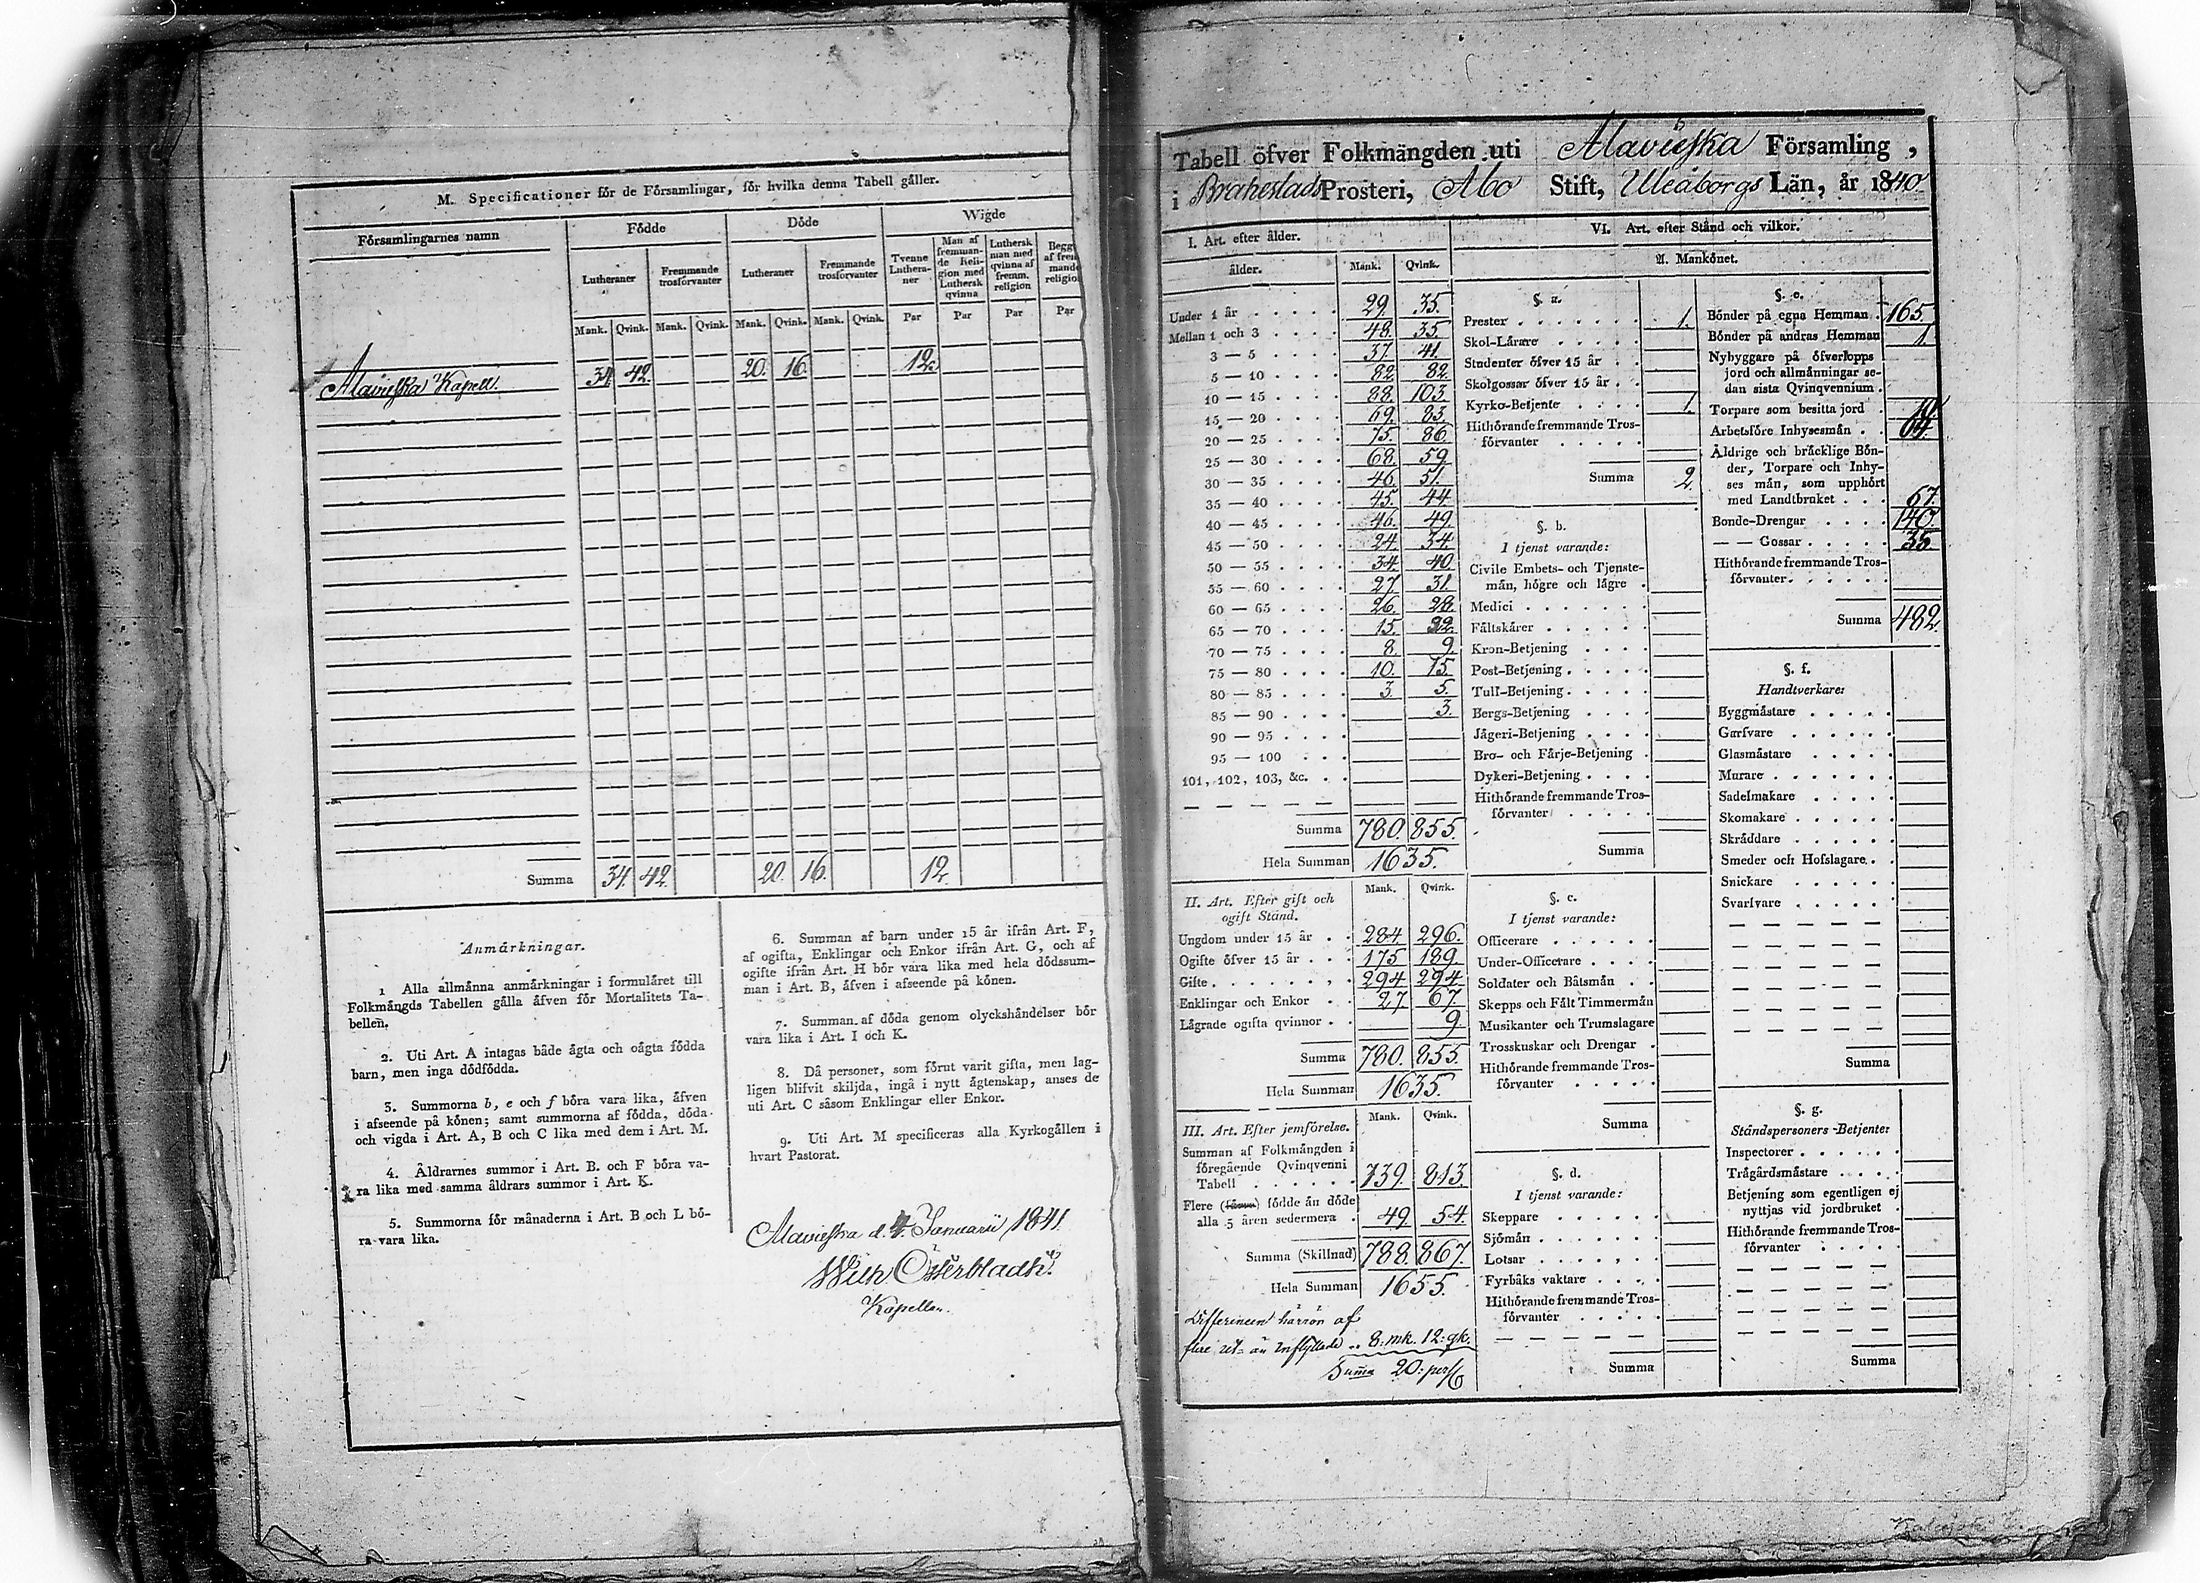 M. Specificationer för de Församlingar, för hvilka denna Tabell gäller.
Församlingarnes namn
Födde
Döde
Wigde
Lutheraner
Fremmande trosförvanter
Lutheraner
Fremmande trosförvanter
Tvenne Lutheraner
Man af fremmande Religion med Luthersk qvinna
Luthersk man med qvinna af fremm. religion
Mank. Qvink. Mank. Qvink. Mank. Qvink. Mank. Qvink. Par Par Par Par
Alavieska Kapell. 34. 42. 20. 16. 12.
Summa 34. 42. 20. 16. 12.
Anmärkningar.
1 Alla allmänna anmärkningar i formuläret till
Folkmängds Tabellen gälla äfven för Mortalitets Ta-
bellen.
2. Uti Art. A intagas både ägta och oägta födda
barn, men inga dödfödda.
3. Summorna b, e och f böra vara lika, äfven
i afseende på könen; samt summorna af födda, döda
och vigda i Art. A, B och C lika med dem i Art. M.
4. Åldrarnes summor i Art. B. och F böra va-
ra lika med samma åldrars summor i Art. K.
5. Summorna för månaderna i Art. B och L bö-
ra vara lika.
6. Summan af barn under 15 år ifrån Art. F,
af ogifta, Enklingar och Enkor ifrån Art. G, och af
ogifte ifrån Art. H bör vara lika med hela dödssum-
man i Art. B, äfven i afseende på könen.
7. Summan af döda genom olyckshändelser bör
vara lika i Art. I och K.
8. Då personer, som förut varit gifta, men lag-
ligen blifvit skiljda, ingå i nytt ägtenskap, anses de
uti Art. C såsom Enklingar eller Enkor.
9. Uti Art. M specificeras alla Kyrkogällen i
hvart Pastorat.
Alavieska d. 4. Januarii 1841.
Wilh Österbladh.
Kapellan.
Tabell öfver Folkmängden uti Alavieska Församling,
i Brahestads Prosteri, Åbo Stift, Uleåborgs Län, år 1840.
I. Art. efter ålder.
ålder. Mank. Qvink.
Under 1 år 29. 35.
Mellan 1 och 3 48. 35.
3 — 5 37. 41.
5 — 10 82. 82.
10 — 15 88. 103.
15 — 20 69. 83.
20 — 25 75. 86.
25 — 30 68. 59.
30 — 35 46. 51.
35 — 40 45. 44.
40 — 45 46. 49.
45 — 50 24. 34.
50 — 55 34. 40.
55 — 60 27. 31.
60 — 65 26. 28.
65 — 70 15. 22.
70 — 75 8. 9.
75 — 80 10. 15.
80 — 85 3. 5.
85 — 90 3.
90 — 95
95 — 100
101, 102, 103, &c.
Summa 780. 855.
Hela Summan 1635.
II. Art. Efter gift och
ogift Stånd.
Mank. Qvink.
Ungdom under 15 år 284. 296.
Ogifte öfver 15 år 175 189.
Gifte 294 294.
Enklingar och Enkor 27 67.
Lägrade ogifta qvinnor 9.
Summa 780. 855
Hela Summan 1635.
III. Art. Efter jemförelse.
Mank. Qvink.
Summan af Folkmängden i
föregående Qvinqvenni
Tabell 739. 813.
Flere (färre) födde än döde
alla 5 åren sedermera 49. 54.
Summa (Skillnad) 788. 867.
Hela Summan 1655.
Differencen härrör af
flere ut- än inflyttade 8: mk. 12: qk.
Summa 20: pers
VI. Art. efter Stånd och vilkor.
A. Mankönet.
§. a.
Prester 1.
Skol-Lärare
Studenter öfver 15 år
Skolgossar öfver 15 år
Kyrko-Betjente 1.
Hithörande fremmande Tros-
förvanter
Summa 2.
§. b.
I tjenst varande:
Civile Embets- och Tjenste-
män, högre och lägre
Medici
Fältskärer
Kron-Betjening
Post-Betjening
Tull-Betjening
Bergs-Betjening
Jägeri-Betjening
Bro- och Färje-Betjening
Dykeri-Betjening
Hithörande fremmande Tros-
förvanter
Summa
§. c.
I tjenst varande:
Officerare
Under-Officerare
Soldater och Båtsmän
Skepps och Fält Timmermän
Musikanter och Trumslagare
Trosskuskar och Drengar
Hithörande fremmande Tros-
förvanter
Summa
§. d.
I tjenst varande:
Skeppare
Sjömän
Lotsar
Fyrbåks vaktare
Hithörande fremmande Tros-
förvanter
Summa
§. e.
Bönder på egna Hemman 165.
Bönder på andras Hemman 1.
Nybyggare på öfverlopps
jord och allmänningar se-
dan sista Qvinqvennium
Torpare som besitta jord
Arbetsföre Inhysesmän 64.
Åldrige och bräcklige Bön-
der, Torpare och Inhy-
ses män, som upphört
med Landtbruket 67.
Bonde-Drengar 140.
— — Gossar 35.
Hithörande fremmande Tros-
förvanter
Summa 482.
§. f.
Handtverkare:
Byggmästare
Garfvare
Glasmästare
Murare
Sadelmakare
Skomakare
Skräddare
Smeder och Hofslagare
Snickare
Svarfvare
Summa
§. g.
Ståndspersoners-Betjente:
Inspectorer
Trägårdsmästare
Betjening som egentligen ej
nyttjas vid jordbruket
Hithörande fremmande Tros-
förvanter
Summa